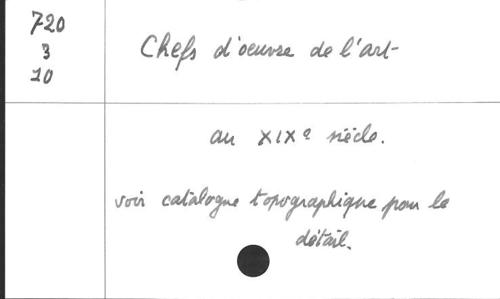 720
3
10
Chefs d'oeuvre de l'art
au XIXe siècle.
voir catalogue topographique pour le
détail.